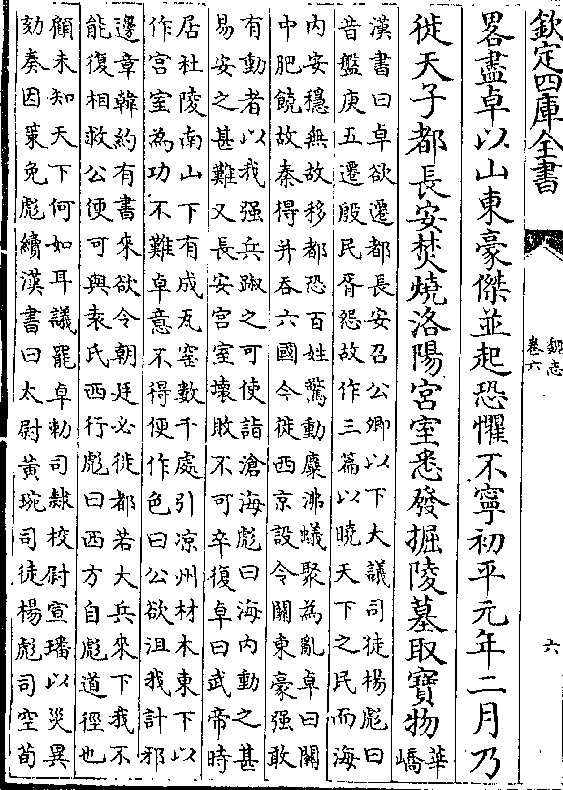 欽定四庫全書
魏志
卷六
六
畧盡卓以山東豪傑並起恐懼不寧初平元年二月乃
徙天子都長安焚燒洛陽宮室悉發掘陵墓取寶物華嶠
漢書曰卓欲遷都長安召公卿以下大議司徒楊彪曰
昔盤庚五遷殷民胥怨故作三篇以曉天下之民而海
內安穩無故移都恐百姓驚動麋沸蟻聚為亂卓曰關
中肥饒故秦得并吞六國今徙西京設令關東豪强敢
有動者以我强兵踧之可使詣滄海彪曰海內動之甚
易安之甚難又長安宮室壞敗不可卒復卓曰武帝時
居社陵南山下有成瓦窰數千處引凉州材木東下以
作宮室為功不難卓意不得便作色曰公欲沮我計邪
邊章韓約有書來欲令朝廷必徙都若大兵來下我不
能復相救公便可與袁氏西行彪曰西方自彪道徑也
顧未知天下何如耳議罷卓勅司隸校尉宣璠以災異
劾奏因策免彪續漢書曰太尉黃琬司徒楊彪司空荀